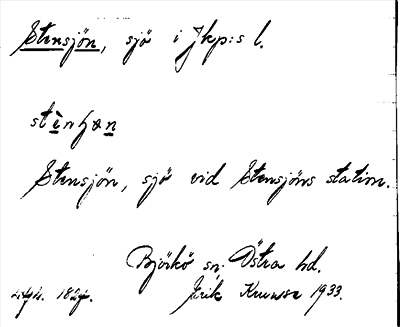 Stensjön, sjö i Jkp:s l.
stènhøn
Stensjön, sjö vid Stensjöns station.
Björkö sn. Östra hd.
Erik Kruuse 1933.